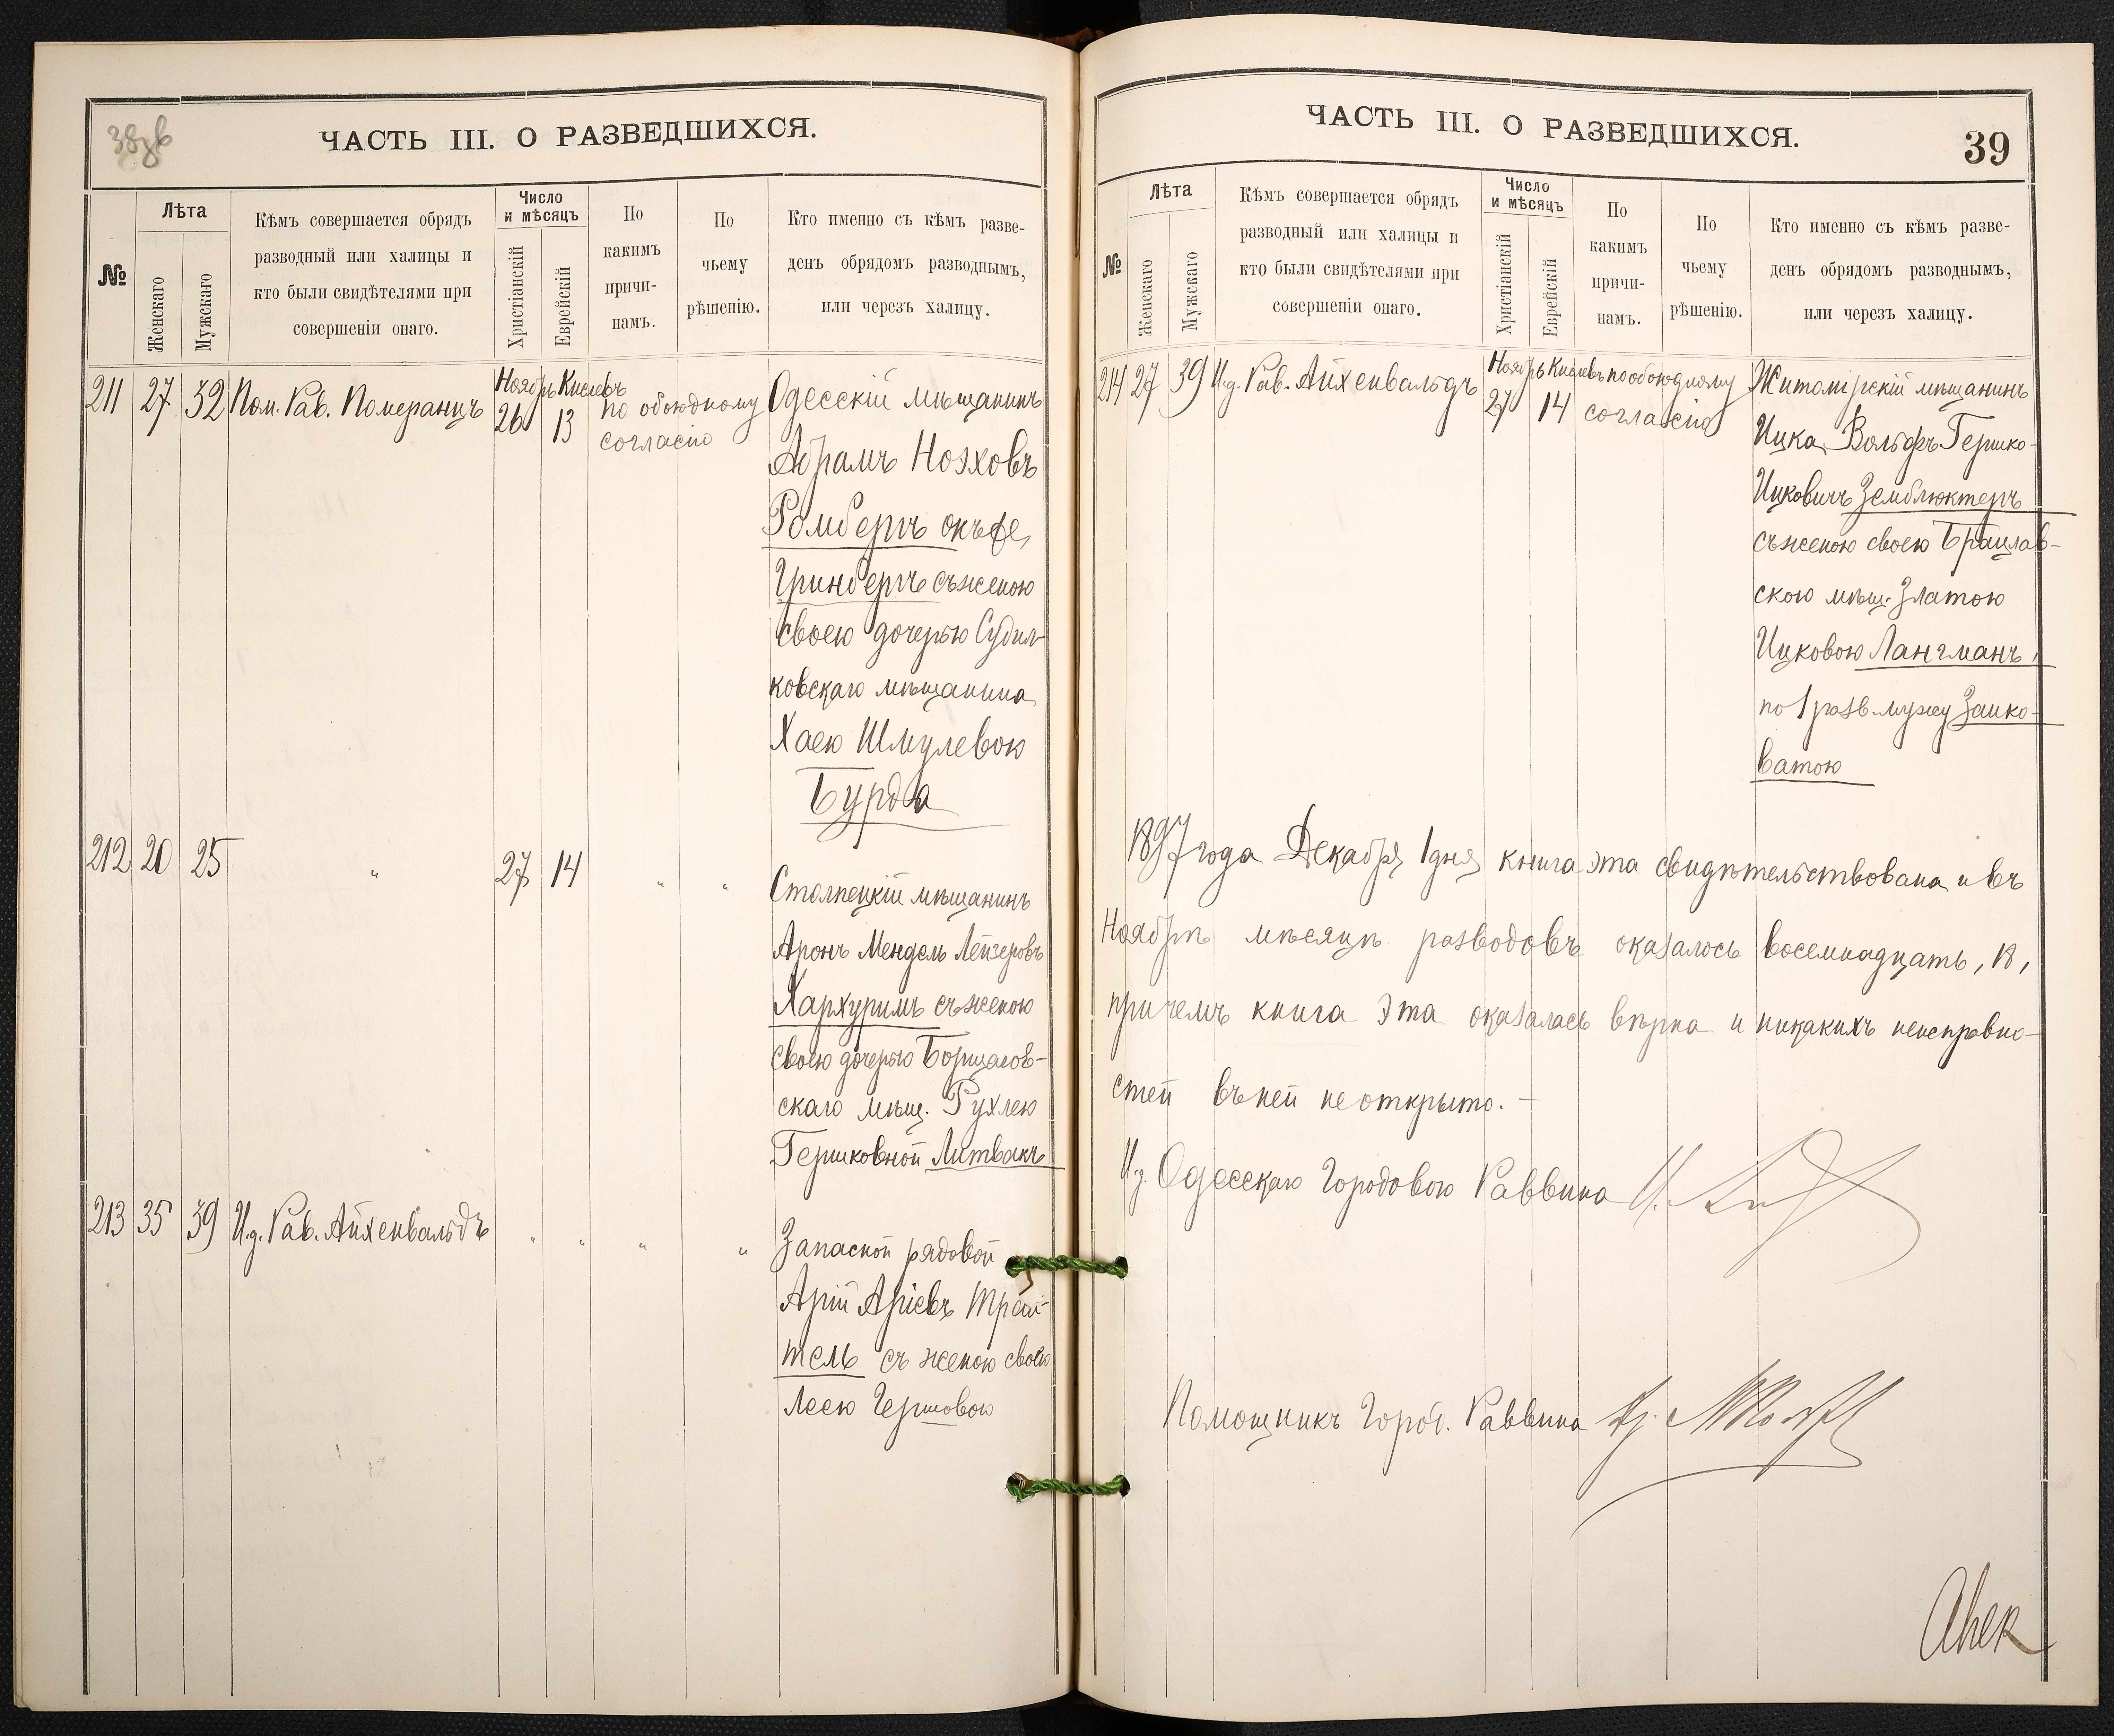 ЧАСТЬ III. О РАЗВЕДШИХСЯ.
№
Лѣта
Женскаго
Мужскаго
Кѣмъ совершается обрядъ
разводный или халицы и
кто были свидѣтелями при
совершеніи онаго.
Число
и мѣсяцъ
Христіанскій
Еврейскій
По
какимъ
причи-
намъ.
По
чьему
рѣшенію.
Кто именно съ кѣмъ разве-
денъ обрядомъ разводнымъ,
или черезъ халицу.
211 27 32 Пом. Рав. Померанцъ
Ноябрь Кислевъ
26 13
по обоюдному
согласію
Одесскій мѣщанинъ
Абрамъ Ноэховъ
Ромбергъ онъ же
Гринбергъ съ женою
своею дочерью Судил-
ковскаго мѣщанина
Хаею Шмулевою
Бурда
212 20 25 " 27 14 " "
Столпецкій мѣщанинъ
Аронъ Мендель Лейзеровъ
Хархуримъ съ женою
своею дочерью Борщагов-
скаго мѣщ. Рухлею
Гершковной Литвакъ
213 35 39 И.д. Рав. Айхенвальдъ " " " "
Запасной рядовой
Арій Аріевъ Трай-
тель съ женою своею
Леею Гершовою
ЧАСТЬ III. О РАЗВЕДШИХСЯ.
39
№
Лѣта
Женскаго
Мужскаго
Кѣмъ совершается обрядъ
разводный или халицы и
кто были свидѣтелями при
совершеніи онаго.
Число
и мѣсяцъ
Христіанскій
Еврейскій
По
какимъ
причи-
намъ.
По
чьему
рѣшенію.
Кто именно съ кѣмъ разве-
денъ обрядомъ разводнымъ,
или черезъ халицу.
214 27 39 И.д. Рав. Айхенвальдъ
Ноябрь Кислевъ
27 14
по обоюдному
согласію
Житомірскій мѣщанинъ
Ицка Вольфъ Гершко-
Ицковичъ Земблюктеръ
съ женою своею Брацлав-
скою мѣщ. Златою
Ицковою Лангманъ,
по 1 разв. мужу Заико-
ватою
1897 года Декабря 1 дня книга эта свидѣтельствована и въ
Ноябрѣ мѣсяцѣ разводовъ оказалось восемнадцать, 18,
причемъ книга эта оказалась вѣрна и никакихъ неисправно-
стей въ ней не открыто. —
И.д. Одесскаго Городового Раввина
Помощникъ Город. Раввина